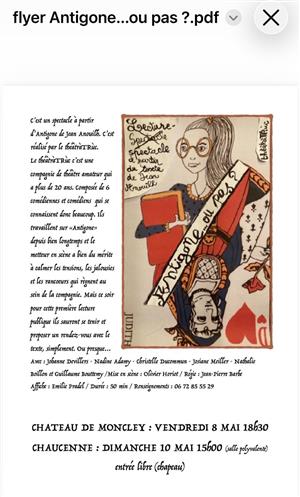 flyer Antigone...ou pas ?.pdf
C'est un spectacle à partir
d'Antigone de Jean Anouilh. C'est
réalisé par le théâtrTRuc.
Le théâtrTRuc c'est une
compagnie de théâtre amateur qui
a plus de 20 ans. Composée de 6
comédiennes et comédiens qui se
connaissent donc beaucoup. Ils
travaillent sur «Antigone»
depuis bien longtemps et le
metteur en scène a bien du mérite
à calmer les tensions, les jalousies
et les rancoeurs qui règnent au
sein de la compagnie. Mais ce soir
pour cette première lecture
publique ils sauront se tenir et
proposer un rendez-vous avec le
texte, simplement. Ou presque...
Lecture-
Spectacle
spectacle
à partir
du texte
de Jean
Anouilh
Antigone ou pas ?
JUDITH
Avec : Johanne Devillers - Nadine Adamy - Christelle Ducommun - Josiane Meiller - Nathalie
Boillon et Guillaume Bouttemy /Mise en scène : Olivier Horiet / Régie : Jean-Pierre Barbe
Affiche : Emilie Pradel / Durée : 50 min / Renseignements : 06 72 85 55 29
CHATEAU DE MONCLEY : VENDREDI 8 MAI 18h30
CHAUCENNE : DIMANCHE 10 MAI 15h00 (salle polyvalente)
entrée libre (chapeau)